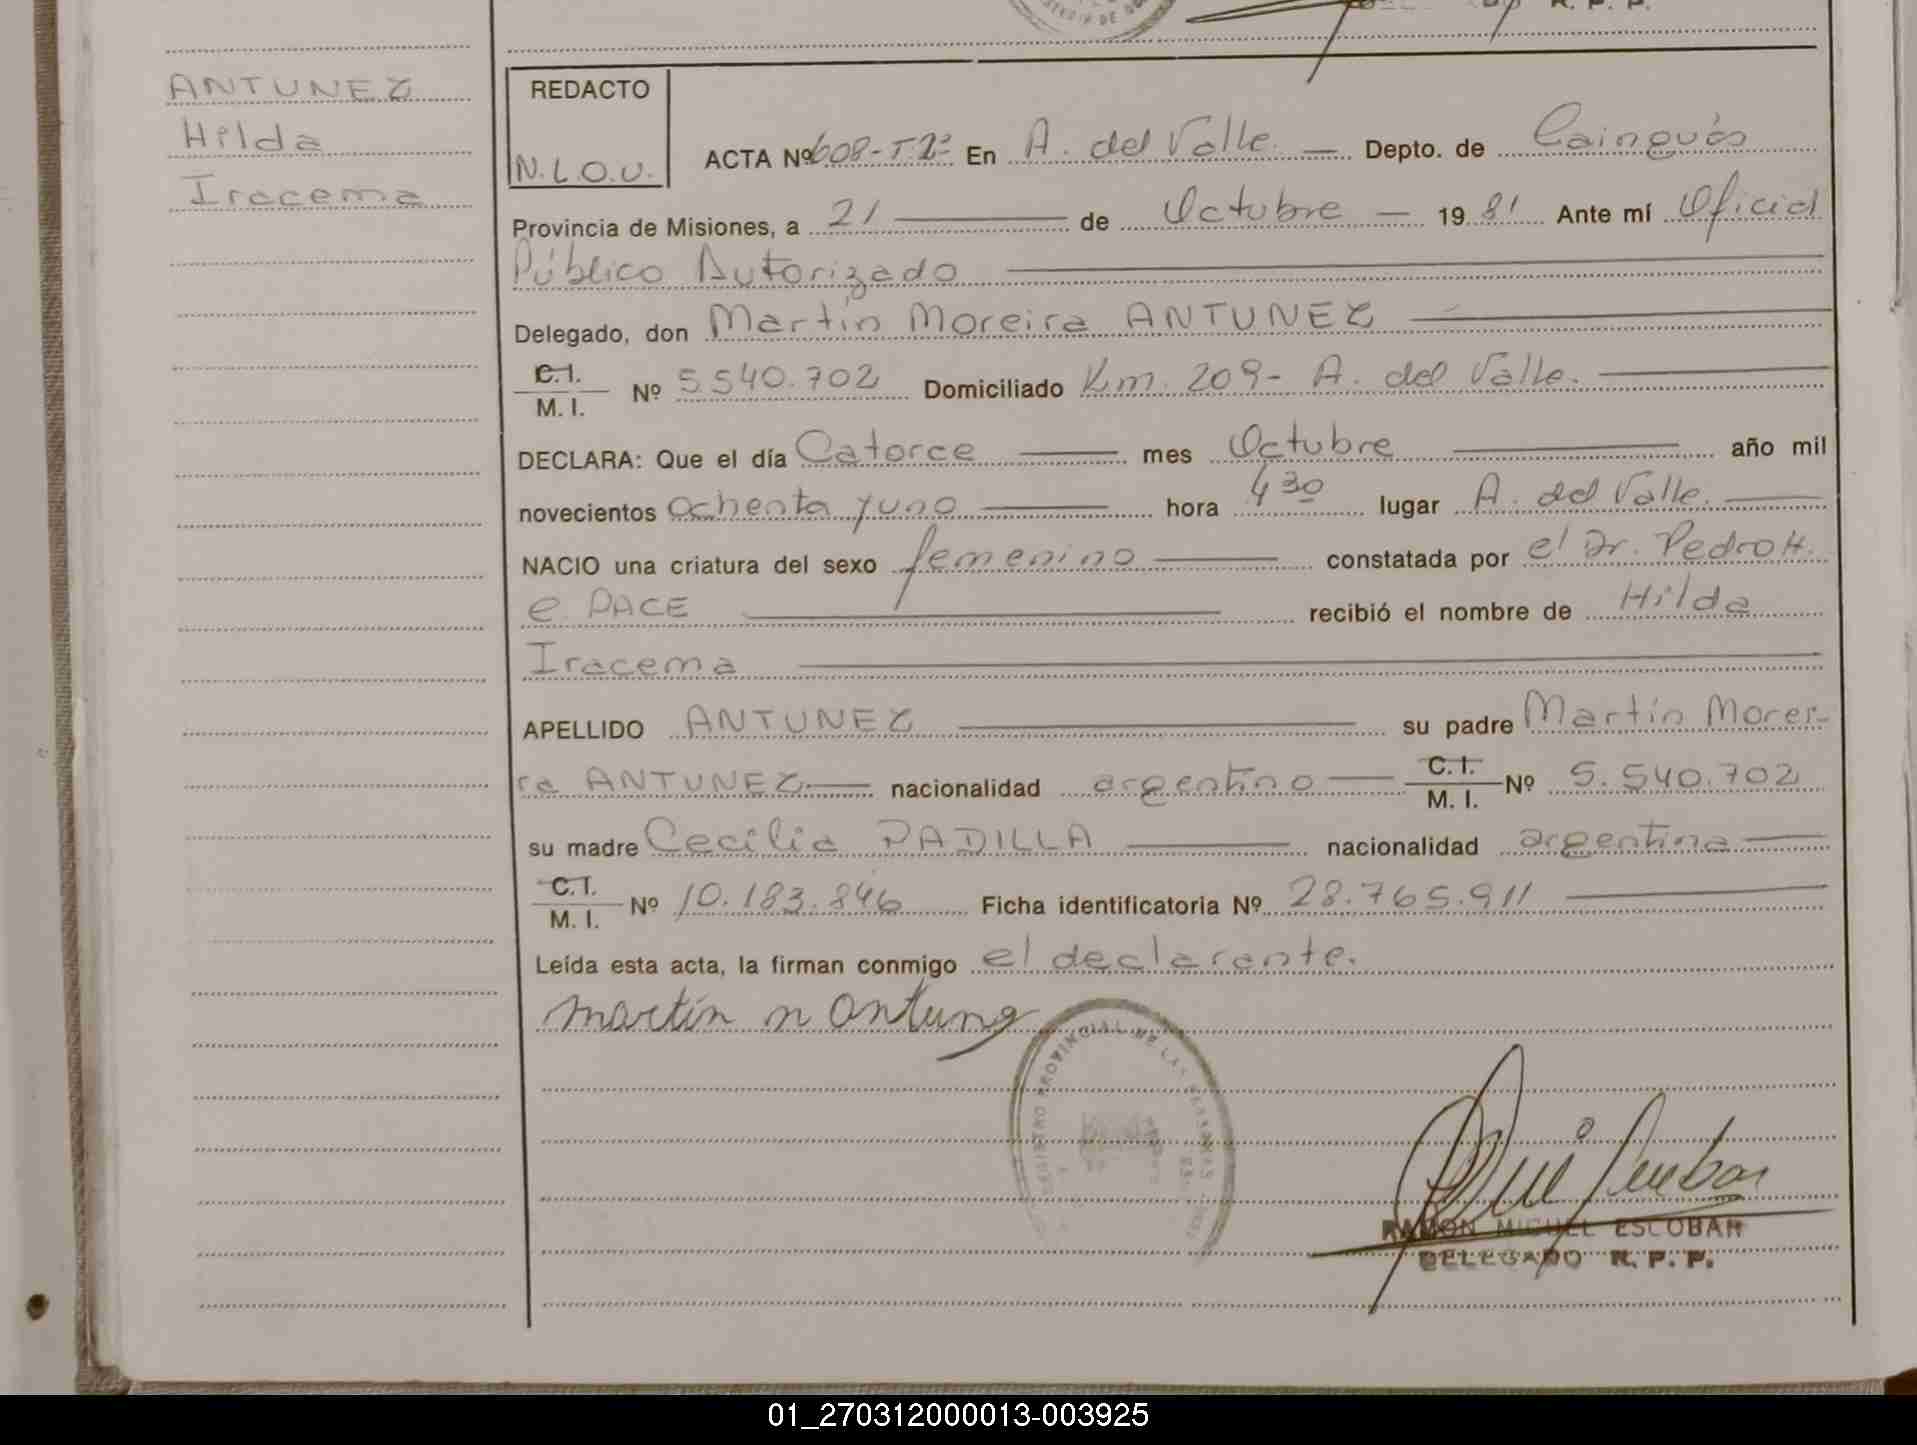 R. P. P.
ANTUNEZ
Hilda
Iracema
REDACTO
N.L.O.U.
ACTA Nº 608-T2º En A. del Valle. Depto. de Cainguás
Provincia de Misiones, a 21 de Octubre 19 81 Ante mí Oficial
Público Autorizado
Delegado, don Martín Moreira ANTUNEZ
C.I.
M. I. Nº 5.540.702 Domiciliado Km. 209- A. del Valle.
DECLARA: Que el día Catorce mes Octubre año mil
novecientos ochenta y uno hora 4 30 lugar A. del Valle.
NACIO una criatura del sexo femenino constatada por el Dr. Pedro H.
e PACE recibió el nombre de Hilda
Iracema
APELLIDO ANTUNEZ su padre Martín Morei-
ra ANTUNEZ nacionalidad argentino C.I. M. I. Nº 5.540.702
su madre Cecilia PADILLA nacionalidad argentina
C.I.
M. I. Nº 10.183.846 Ficha identificatoria Nº 28.765.911
Leída esta acta, la firman conmigo el declarante.
martín m Antunez
REGISTRO PROVINCIAL DE LAS PERSONAS
RAMON MIGUEL ESCOBAR
DELEGADO R. P. P.
01_270312000013-003925